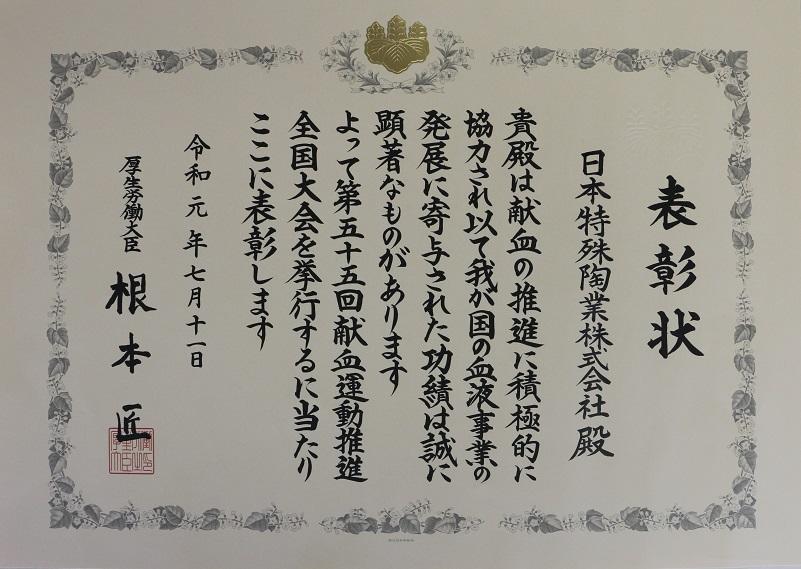 表彰状
日本特殊陶業株式会社殿
貴殿は献血の推進に積極的に
協力され以て我が国の血液事業の
発展に寄与された功績は誠に
顕著なものがあります
よって第五十五回献血運動推進
全国大会を挙行するに当たり
ここに表彰します
令和元年七月十一日
厚生労働大臣
根本匠